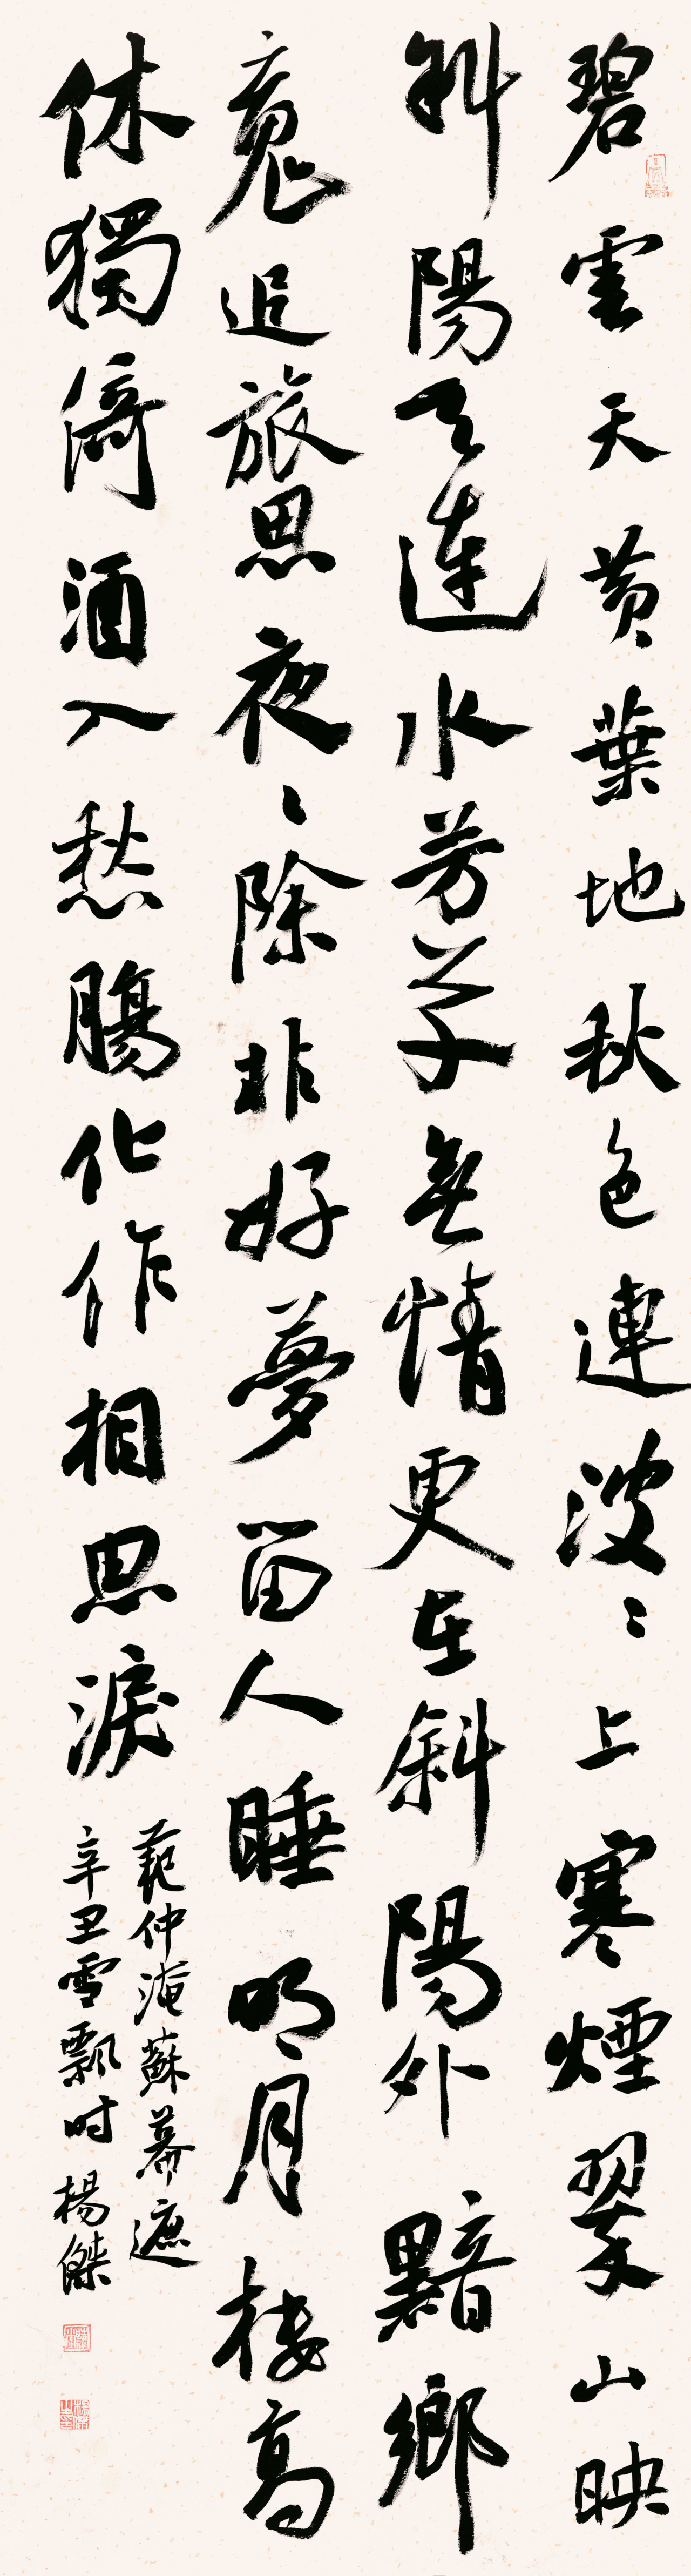 碧雲天黄葉地秋色連波〻上寒煙翠山映
斜陽天連水芳草無情更在斜陽外黯鄉
魂追旅思夜〻除非好夢留人睡明月樓高
休獨倚酒入愁腸化作相思淚
范仲淹蘇幕遮
辛丑雪飄时楊傑